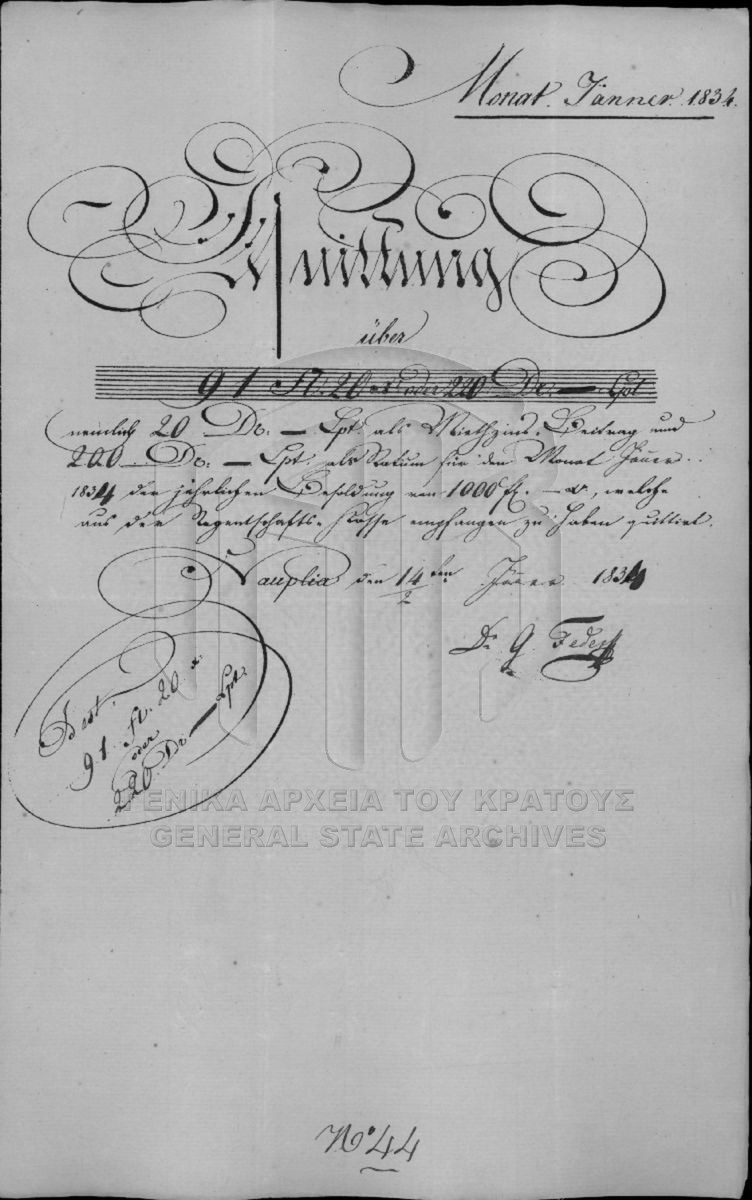 Monat. Jänner. 1834.
Quittung
über
91 Fl. 20 x oder 220 Dr: — Lpt
nemlich 20 Dr: — Lpt. als Miethzins-Beitrag und
200 Dr: — Lpt. als Ratum für den Monat Jäner
1834 der jährlichen Besoldung von 1000 fl. — x., welche
aus der Regentschafts-Kasse empfangen zu haben quittirt.
Nauplia den 14ten Jäner 1834
Dr. G. Feder
Best.
91. Fl. 20 x
oder
220. Dr — Lpt.
ΓΕΝΙΚΑ ΑΡΧΕΙΑ ΤΟΥ ΚΡΑΤΟΥΣ
GENERAL STATE ARCHIVES
No. 44